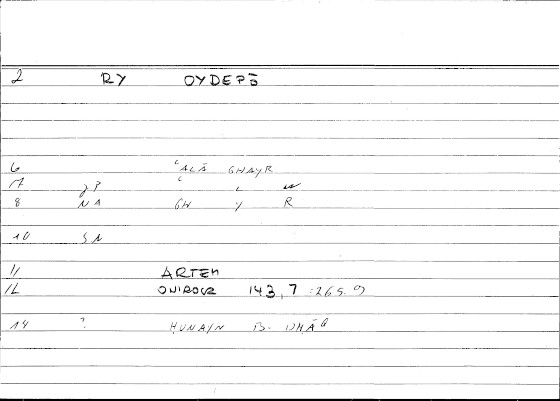 2 RY OYDEPŌ
6 ʿALĀ GHAYR
8 NA GH Y R
10 SN
11 ARTEM
12 ONIROCR 143,7 =265.9
14 ? HUNAYN B.